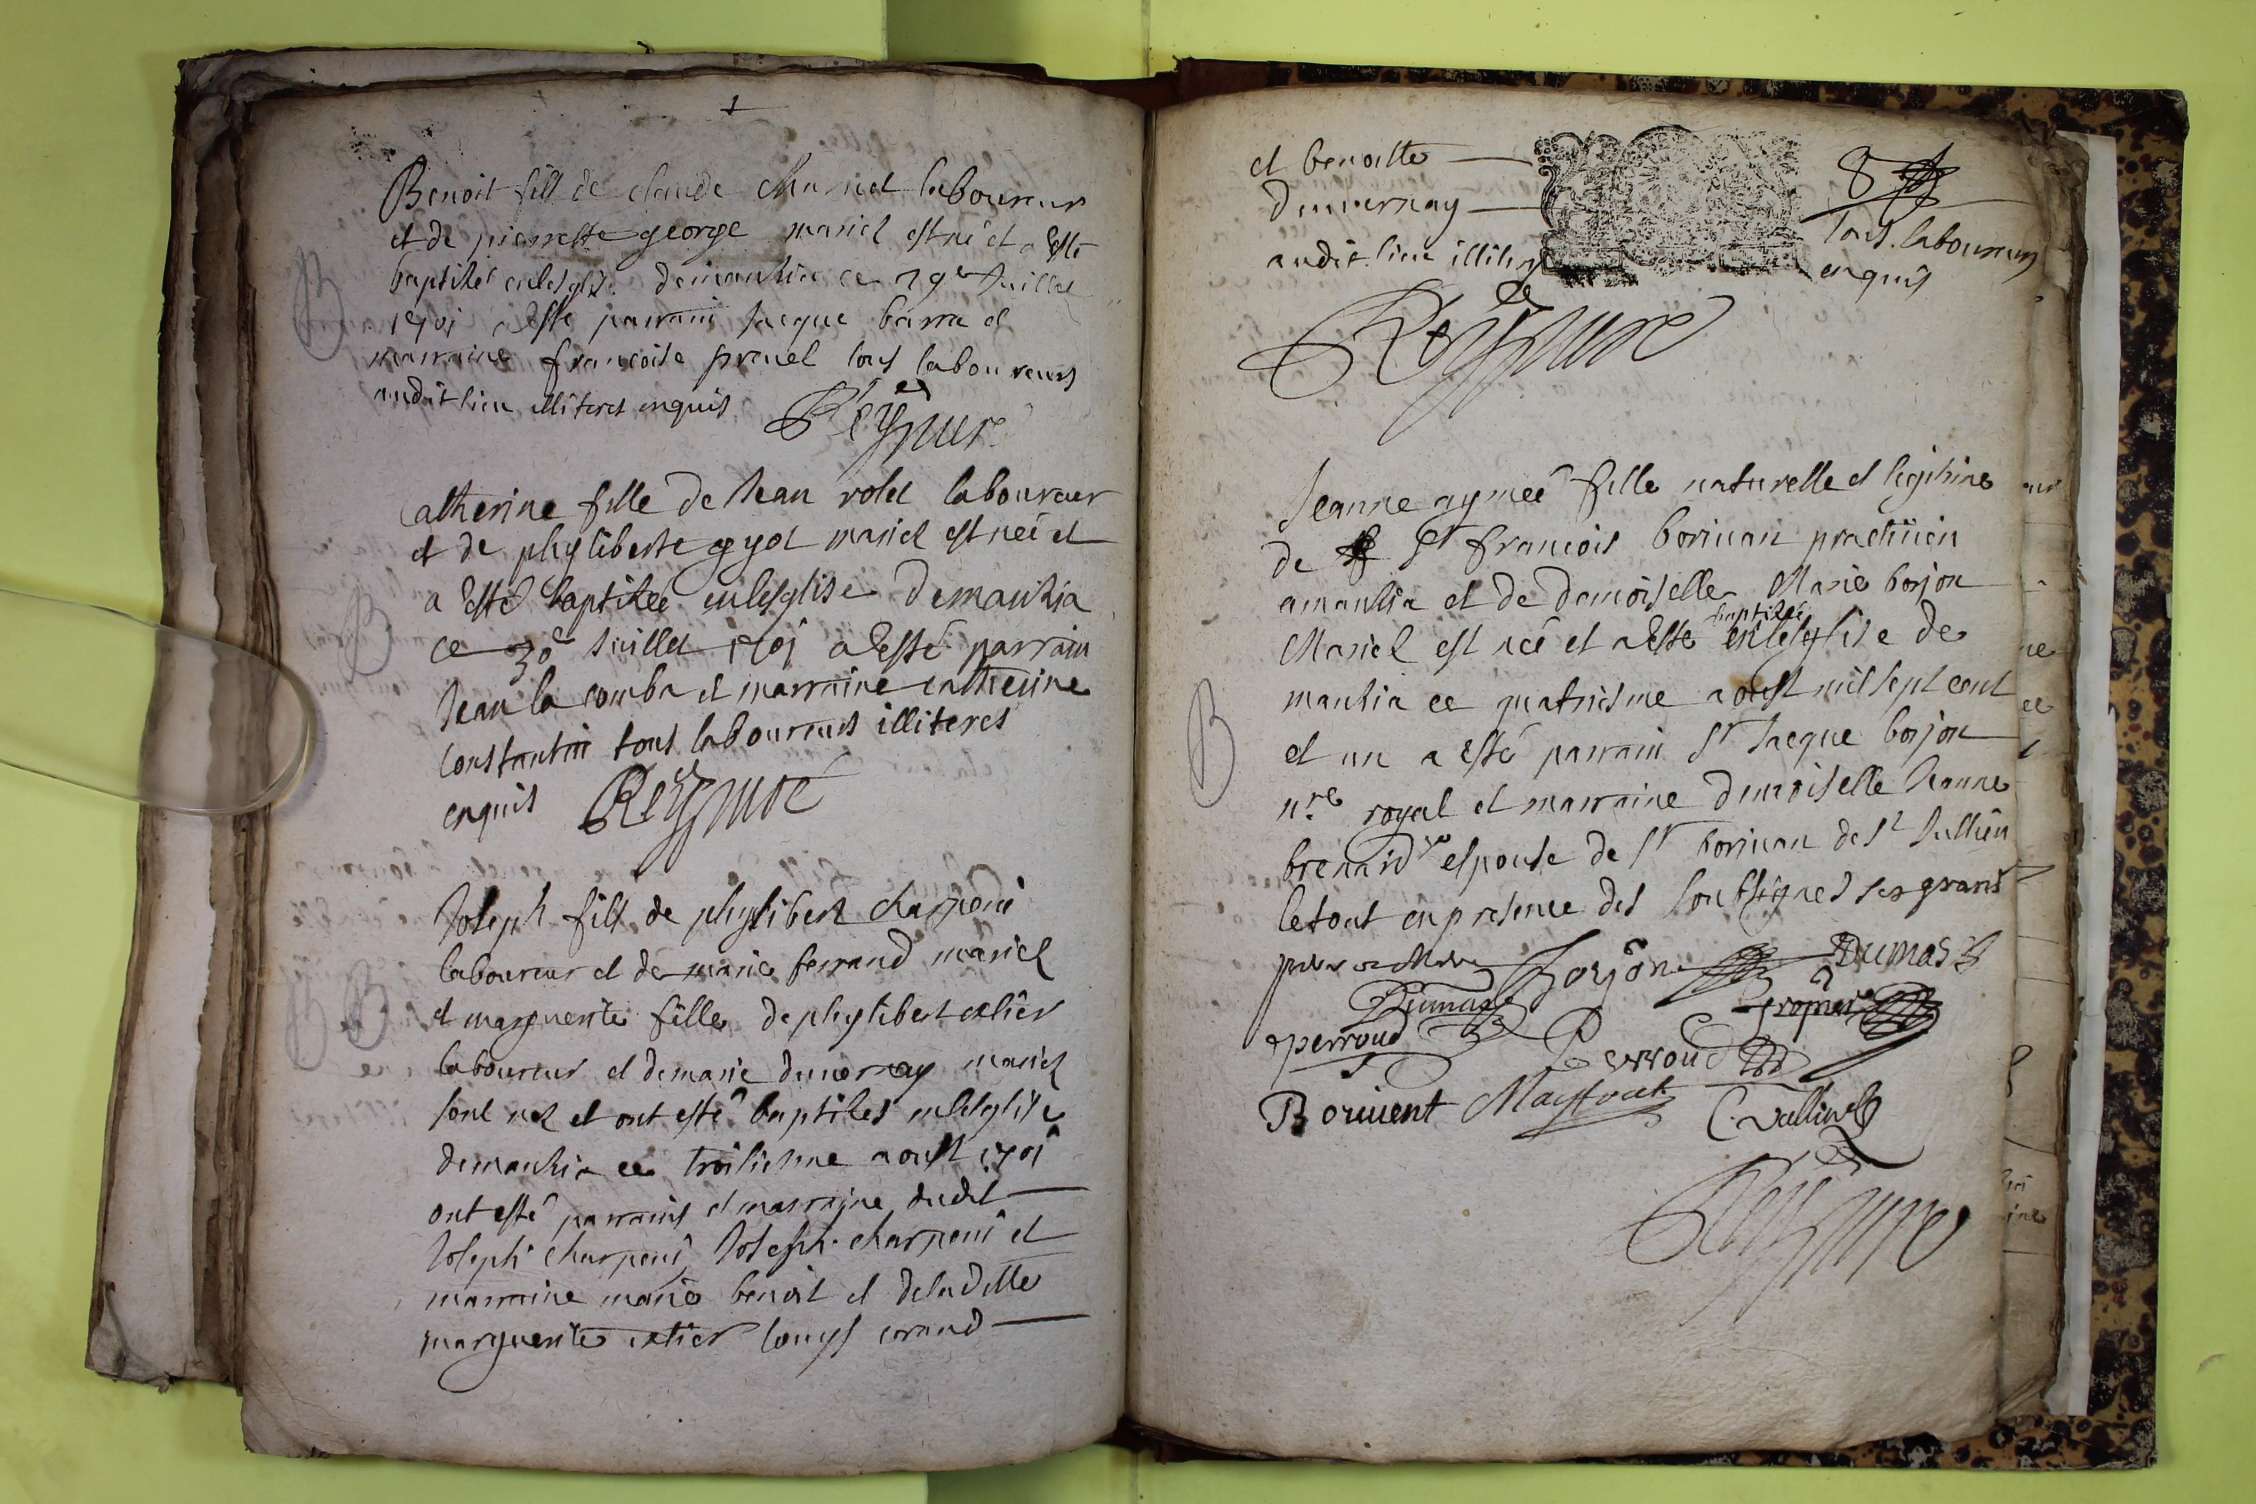 Benoit fils de claude charvet laboureur
et de pierrette george mariez est né et a esté
baptisé enlesglise demanzia ce 29e Juillet
1701 a esté parrain Jacque barra et
marraine francoise pruel tous laboureurs
audit lieu illiteres enquis
Reÿssure
B
Catherine fille de Jean rolet laboureur
et de phyliberte gyot mariez est neé et
a esté baptiseé enlesglise demanzia
ce 30e Juillet 1701 a esté parrain
Jean la comba et marraine catherine
Constantin tous laboureurs illiteres
enquis Reÿssure
B
Joseph fils de phylibert charpein
laboureur et de marie ferrand mariez
et marguerite fille de phylibert
B B
laboureur et demarie duvernay mariez
sont nez et ont esté baptises enlesglise
demanzia ce troisiesme aoust 1701
ont esté parrains et marraine dudit
Joseph charpein Joseph charpein et
marraine marie benoit et deladitte
marguerite louys
et benoitte
duvernay
audit lieu illiteres
8
tous laboureurs
enquis
Reÿssure
Jeanne aymeé fille naturelle et legitime
de Sr francois borivan practicien
amanzia et de demoiselle Marie borjon
Mariez est neé et a esté baptiseé enlesglise de
manzia ce quatriesme aoust mil sept cent
et un a esté parrain Sr Jacque borjon
nre royal et marraine demoiselle Jeanne
brenard espouse de Sr borivan de St Jullien
le tout en presence des soubsignes ses grans
B
Borjon Dumas
Dumas
perroud Perroud
Borivent C. Vallin
Reÿssure